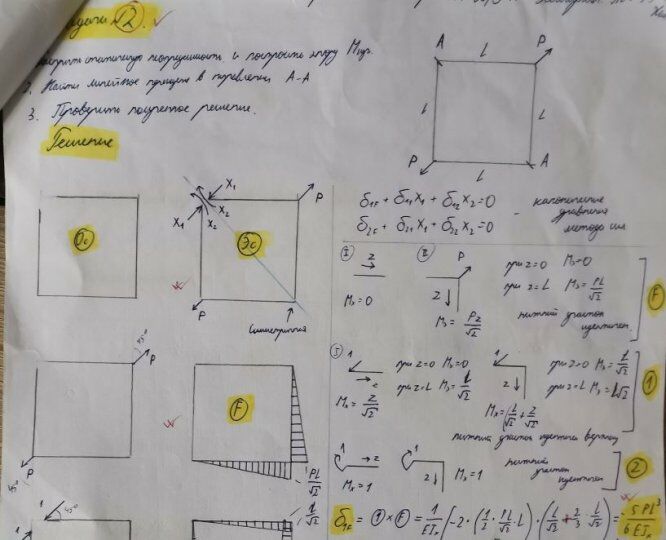 Задача №2.
Раскрыть статическую неопределимость и построить эпюру Мизг.
2. Найти линейное перемещ в направлении A-A
3. Проверить полученное решение.
Решение
A
P
L
L
L
P
L
A
Ос
X₁
X₁
X₂
X₂
P
Эс
P
Симметричная
δ1F + δ11X1 + δ12 X2 = 0
δ2F + δ21X1 + δ22 X2 = 0
- канонические
уравнения
метода сил
I
z
Mз = 0
II
P
z
Mз = Pz/√2
при z=0 Mз=0
при z=L Mз = PL/√2
нижний участок
идентичен.
F
I
z
Mх = z/√2
при z=0 Mз=0
при z=L Mз = L/√2
1
z
Mх = L/√2 + z/√2
при z=0 Mз = L/√2
при z=L Mз = L√2
нижний участок идентичен верхнему
1
1
→ z
Mх = 1
1
z
Mз = 1
нижний
участок
идентичен
2
45°
P
P
45°
F
PL/√2
1
45°
L/√2
δ1F = 1 × F = 1/EIx [-2·(1/2 · PL/√2 · L)·(L/√2 + 2/3 · L/√2) = -5PL³/6EIx